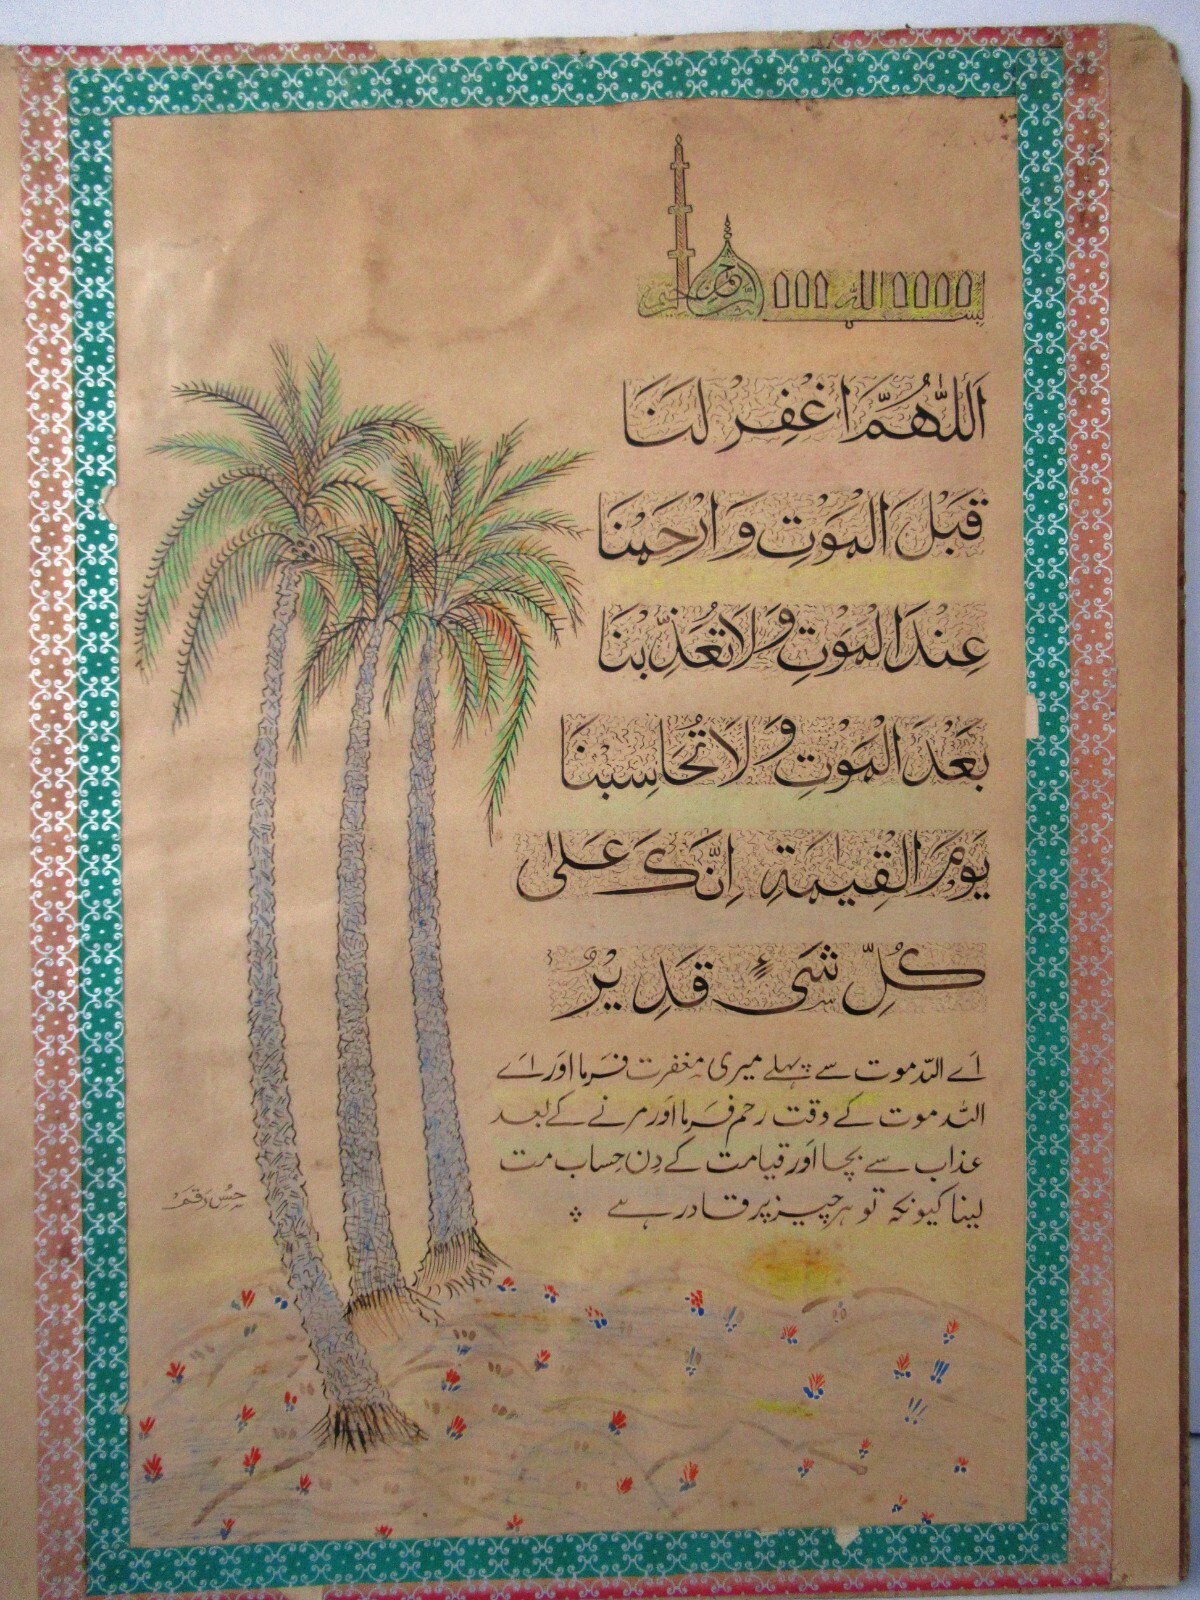 بسم الله الرحمن الرحيم
اَللّٰهُمَّ اغْفِرْ لَنَا
قَبْلَ الْمَوْتِ وَارْحَمْنَا
عِنْدَ الْمَوْتِ وَلَا تُعَذِّبْنَا
بَعْدَ الْمَوْتِ وَلَا تُحَاسِبْنَا
يَوْمَ الْقِيٰمَةِ اِنَّكَ عَلٰى
كُلِّ شَىْءٍ قَدِيْرُ
اَے اللہ موت سے پہلے میری مغفرت فَرما اور اَے
اللہ موت کے وقت رحم فَرما اور مرنے کے بعد
عذاب سے بچا اَور قیامت کے دِن حِساب مت
لینا کیونکہ تو ہر چیز پر قادر ہے